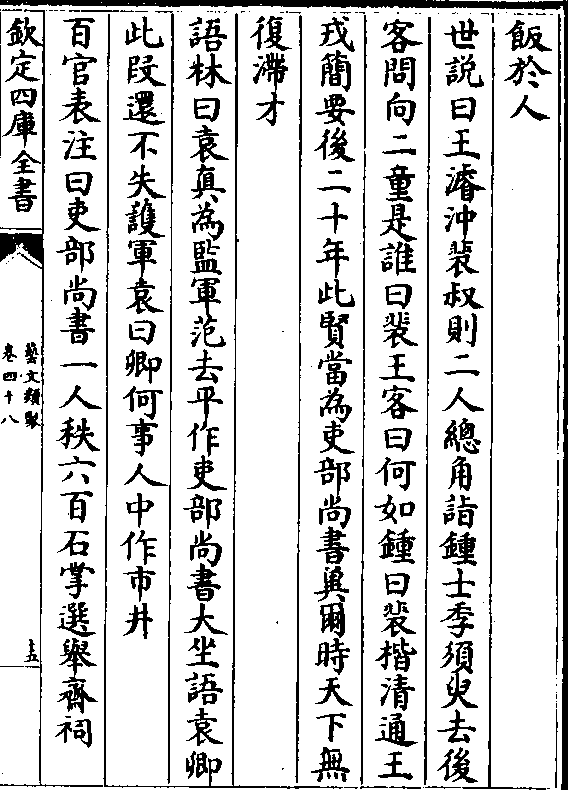 飯於人
世説曰王濬沖裴叔則二人總角詣鍾士季須臾去後
客問向二童是誰曰裴王客曰何如鍾曰裴楷清通王
戎簡要後二十年此賢當為吏部尚書兾爾時天下無
復滯才
語林曰袁真為監軍范去平作吏部尚書大坐語袁卿
此叚還不失護軍袁曰卿何事人中作市井
百官表注曰吏部尚書一人秩六百石掌選舉齋祠
欽定四庫全書
藝文類聚
卷四十八
十五